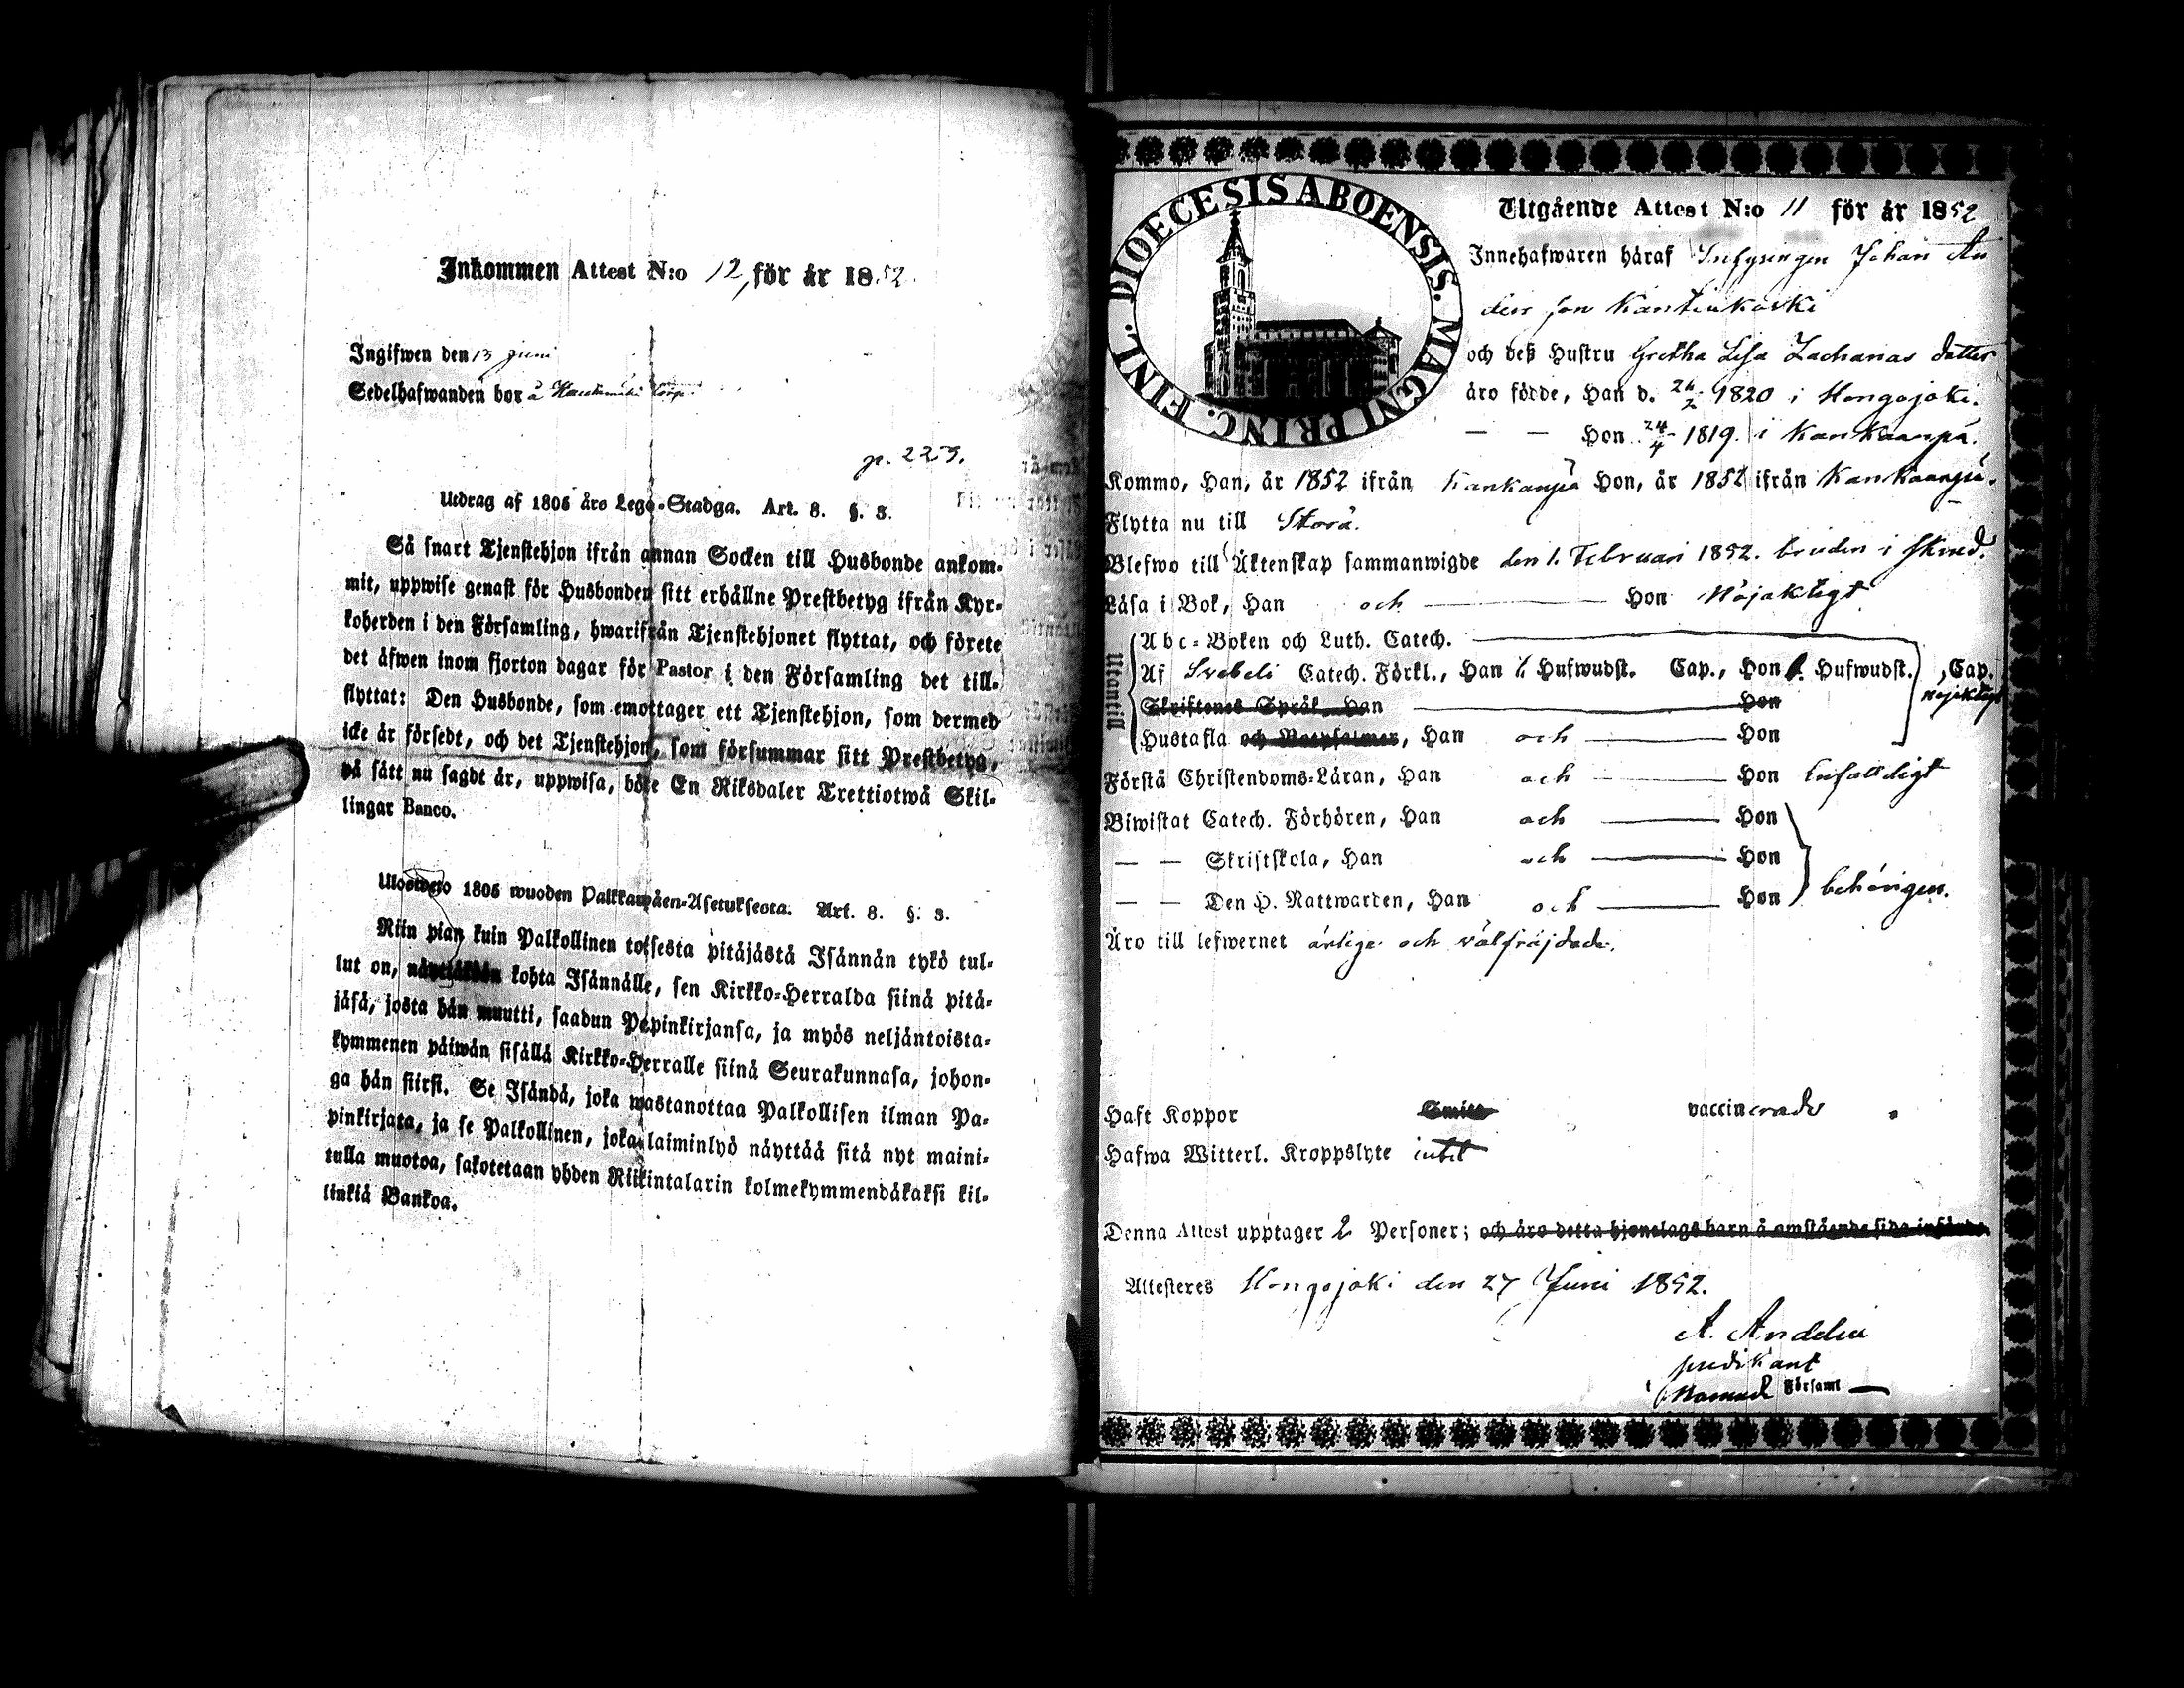 Inkommen Attest N:o 12, för år 1852.
Ingifwen den 13 juni
Sedelhafwanden bor å torp.
p. 223.
Utdrag af 1805 års Lego-Stadga. Art. 8. §. 3.
Så snart Tjenstehjon ifrån annan Socken till Husbonde ankom-
mit, uppwise genast för Husbonden sitt erhållne Prestbetyg ifrån Kyr-
koherden i den Församling, hwarifrån Tjenstehjonet flyttat, och förete
det äfwen inom fjorton dagar för Pastor i den Församling det till-
flyttat: Den Husbonde, som emottager ett Tjenstehjon, som dermed
icke är försedt, och det Tjenstehjon, som försummar sitt Prestbetyg,
på sätt nu sagdt är, uppwisa, böte En Riksdaler Trettiotwå Skil-
lingar Banco.
Ulosweto 1805 wuoden Palkkawäen-Asetuksesta. Art. 8. §. 3.
Niin pian kuin Palkollinen toisesta pitäjästä Isännän tykö tul-
lut on, näyttäkään kohta Isännälle, sen Kirkko-Herralda siinä pitä-
jäsä, josta hän muutti, saadun Papinkirjansa, ja myös neljäntoista-
kymmenen päiwän sisällä Kirkko-Herralle siinä Seurakunnasa, johon-
ga hän siirsi. Se Isändä, joka wastanottaa Palkollisen ilman Pa-
pinkirjata, ja se Palkollinen, joka laiminlyö näyttää sitä nyt maini-
tulla muotoa, sakotetaan yhden Riikintalarin kolmekymmendäkaksi kil-
linkiä Bankoa.
DIOECESIS ABOENSIS. MAGNI PRINC. FINL.
Utgående Attest N:o 11 för år 1852
Innehafwaren häraf Inhysingen Johan An
ders son Kantinkoski
och deß Hustru Gretha Lisa Zacharias dotter
äro födde, Han d. 26/2 1820 i Hongojoki.
— — Hon 24/4 1819. i Kankaanpä.
Kommo, Han, år 1852 ifrån Kankanpä Hon, år 1852 ifrån Kankaanpä.
Flytta nu till Storå.
Blefwo till Äktenskap sammanwigde den 1. Februari 1852. bruden i skrud.
Läsa i Bok, Han och — Hon Nöjaktigt
Utantill
Abc-Boken och Luth. Catech.
Af Svebeli Catech. Förkl., Han 1. Hufwudst. Cap., Hon 1. Hufwudst., Cap.
nöjaktigt
Skriftenes Språk Han — Hon
Hustafla och Botpsalmer, Han och — Hon
Förstå Christendoms-Läran, Han och — Hon Enfalldigt
Biwistat Catech. Förhören, Han och — Hon
— — Skriftskola, Han och — Hon
behörigen.
— — Den H. Nattwarden, Han och — Hon
Äro till lefwernet ärliga och välfräjdade.
Haft Koppor Smitt vaccinerade
Hafwa Witterl. Kroppslyte intet
Denna Attest upptager 2 Personer; och äro detta hjonelags barn å omstående sida införde
Attesteres Hongojoki den 27 Juni 1852.
A. Andelin
predikant
i Församl